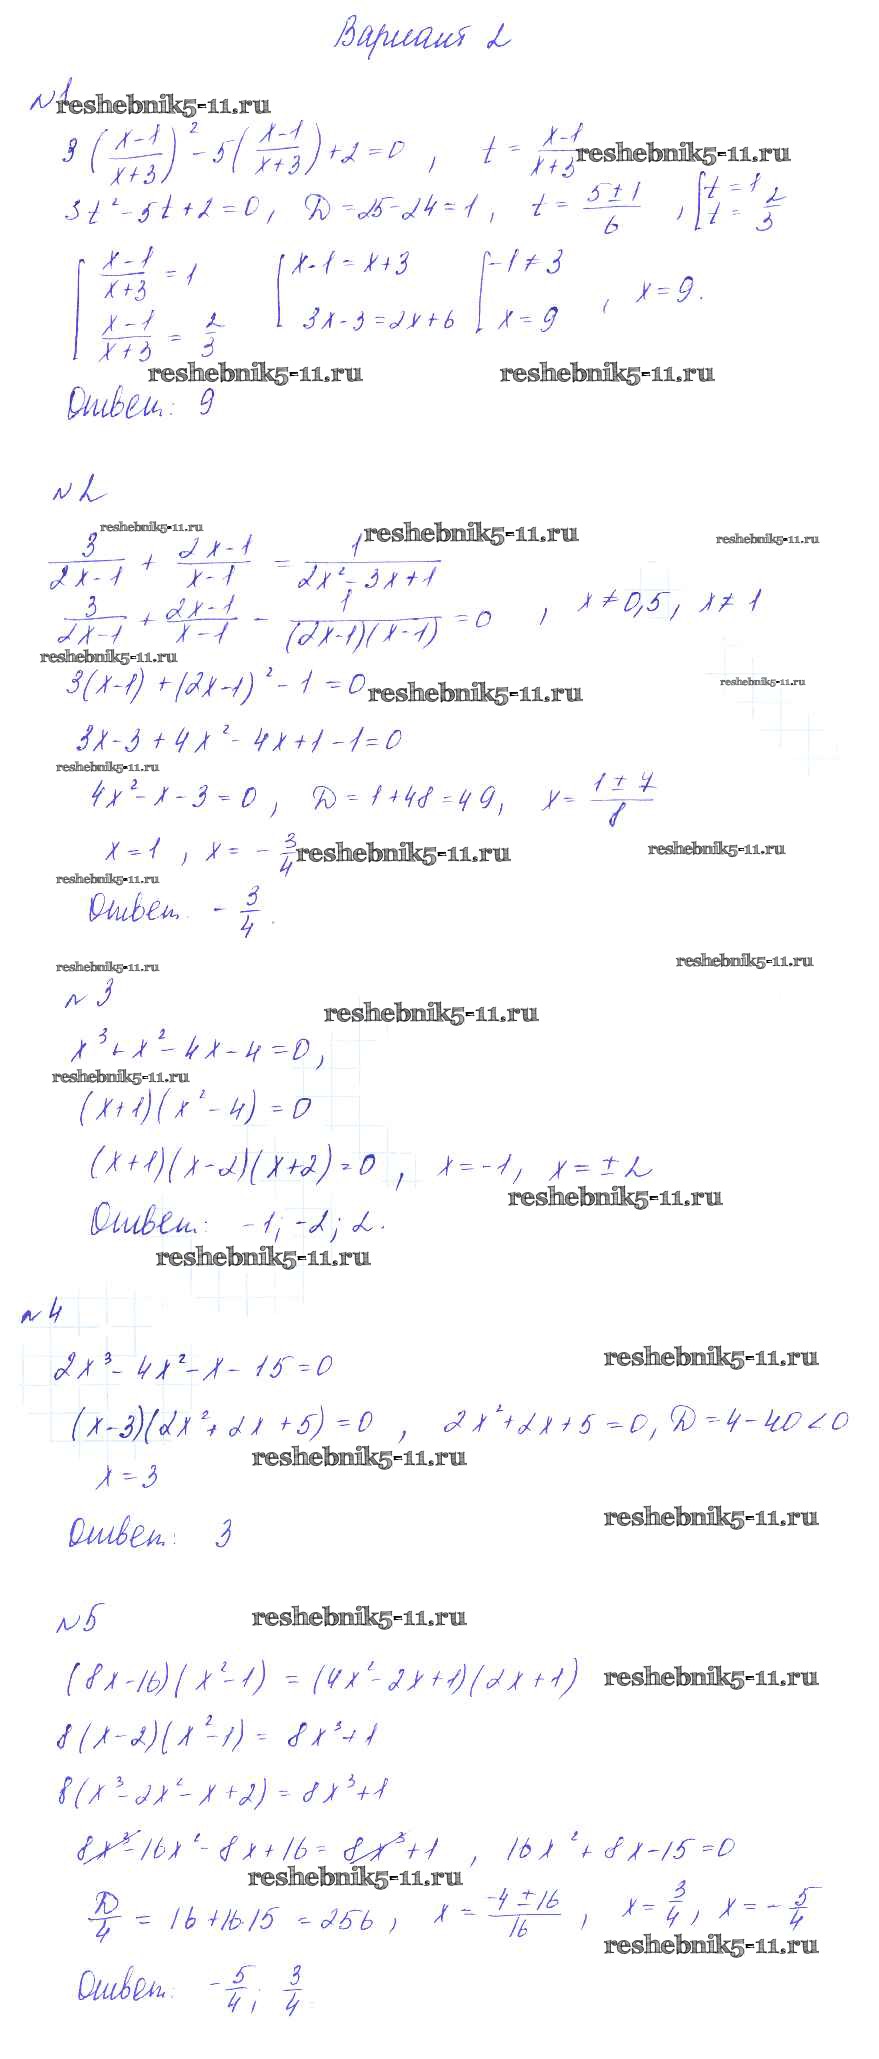 Вариант 2
№1
reshebnik5-11.ru
3((x-1)/(x+3))² - 5((x-1)/(x+3)) + 2 = 0, t = (x-1)/(x+3)
reshebnik5-11.ru
3t² - 5t + 2 = 0, D = 25 - 24 = 1, t = (5 ± 1)/6, [t = 1 t = 2/3
[(x-1)/(x+3) = 1 [x-1 = x+3 [-1 ≠ 3
(x-1)/(x+3) = 2/3 3x-3 = 2x+6 x = 9, x = 9.
reshebnik5-11.ru reshebnik5-11.ru
Ответ: 9
№2
reshebnik5-11.ru reshebnik5-11.ru reshebnik5-11.ru
3/(2x-1) + (2x-1)/(x-1) = 1/(2x² - 3x + 1)
3/(2x-1) + (2x-1)/(x-1) - 1/((2x-1)(x-1)) = 0, x ≠ 0,5, x ≠ 1
reshebnik5-11.ru
3(x-1) + (2x-1)² - 1 = 0
reshebnik5-11.ru reshebnik5-11.ru
3x - 3 + 4x² - 4x + 1 - 1 = 0
reshebnik5-11.ru
4x² - x - 3 = 0, D = 1 + 48 = 49, x = (1 ± 7)/8
x = 1, x = -3/4
reshebnik5-11.ru reshebnik5-11.ru
reshebnik5-11.ru
Ответ. -3/4.
reshebnik5-11.ru reshebnik5-11.ru
№3
reshebnik5-11.ru
x³ + x² - 4x - 4 = 0,
reshebnik5-11.ru
(x+1)(x² - 4) = 0
(x+1)(x-2)(x+2) = 0, x = -1, x = ±2
reshebnik5-11.ru
Ответ: -1; -2; 2.
reshebnik5-11.ru
№4
2x³ - 4x² - x - 15 = 0
reshebnik5-11.ru
(x-3)(2x² + 2x + 5) = 0, 2x² + 2x + 5 = 0, D = 4 - 40 < 0
reshebnik5-11.ru
x = 3
reshebnik5-11.ru
Ответ: 3
№5
reshebnik5-11.ru
(8x-16)(x²-1) = (4x² - 2x + 1)(2x + 1)
reshebnik5-11.ru
8(x-2)(x²-1) = 8x³ + 1
8(x³ - 2x² - x + 2) = 8x³ + 1
8x³ - 16x² - 8x + 16 = 8x³ + 1, 16x² + 8x - 15 = 0
reshebnik5-11.ru
D/4 = 16 + 16·15 = 256, x = (-4 ± 16)/16, x = 3/4, x = -5/4
reshebnik5-11.ru
Ответ: -5/4; 3/4.